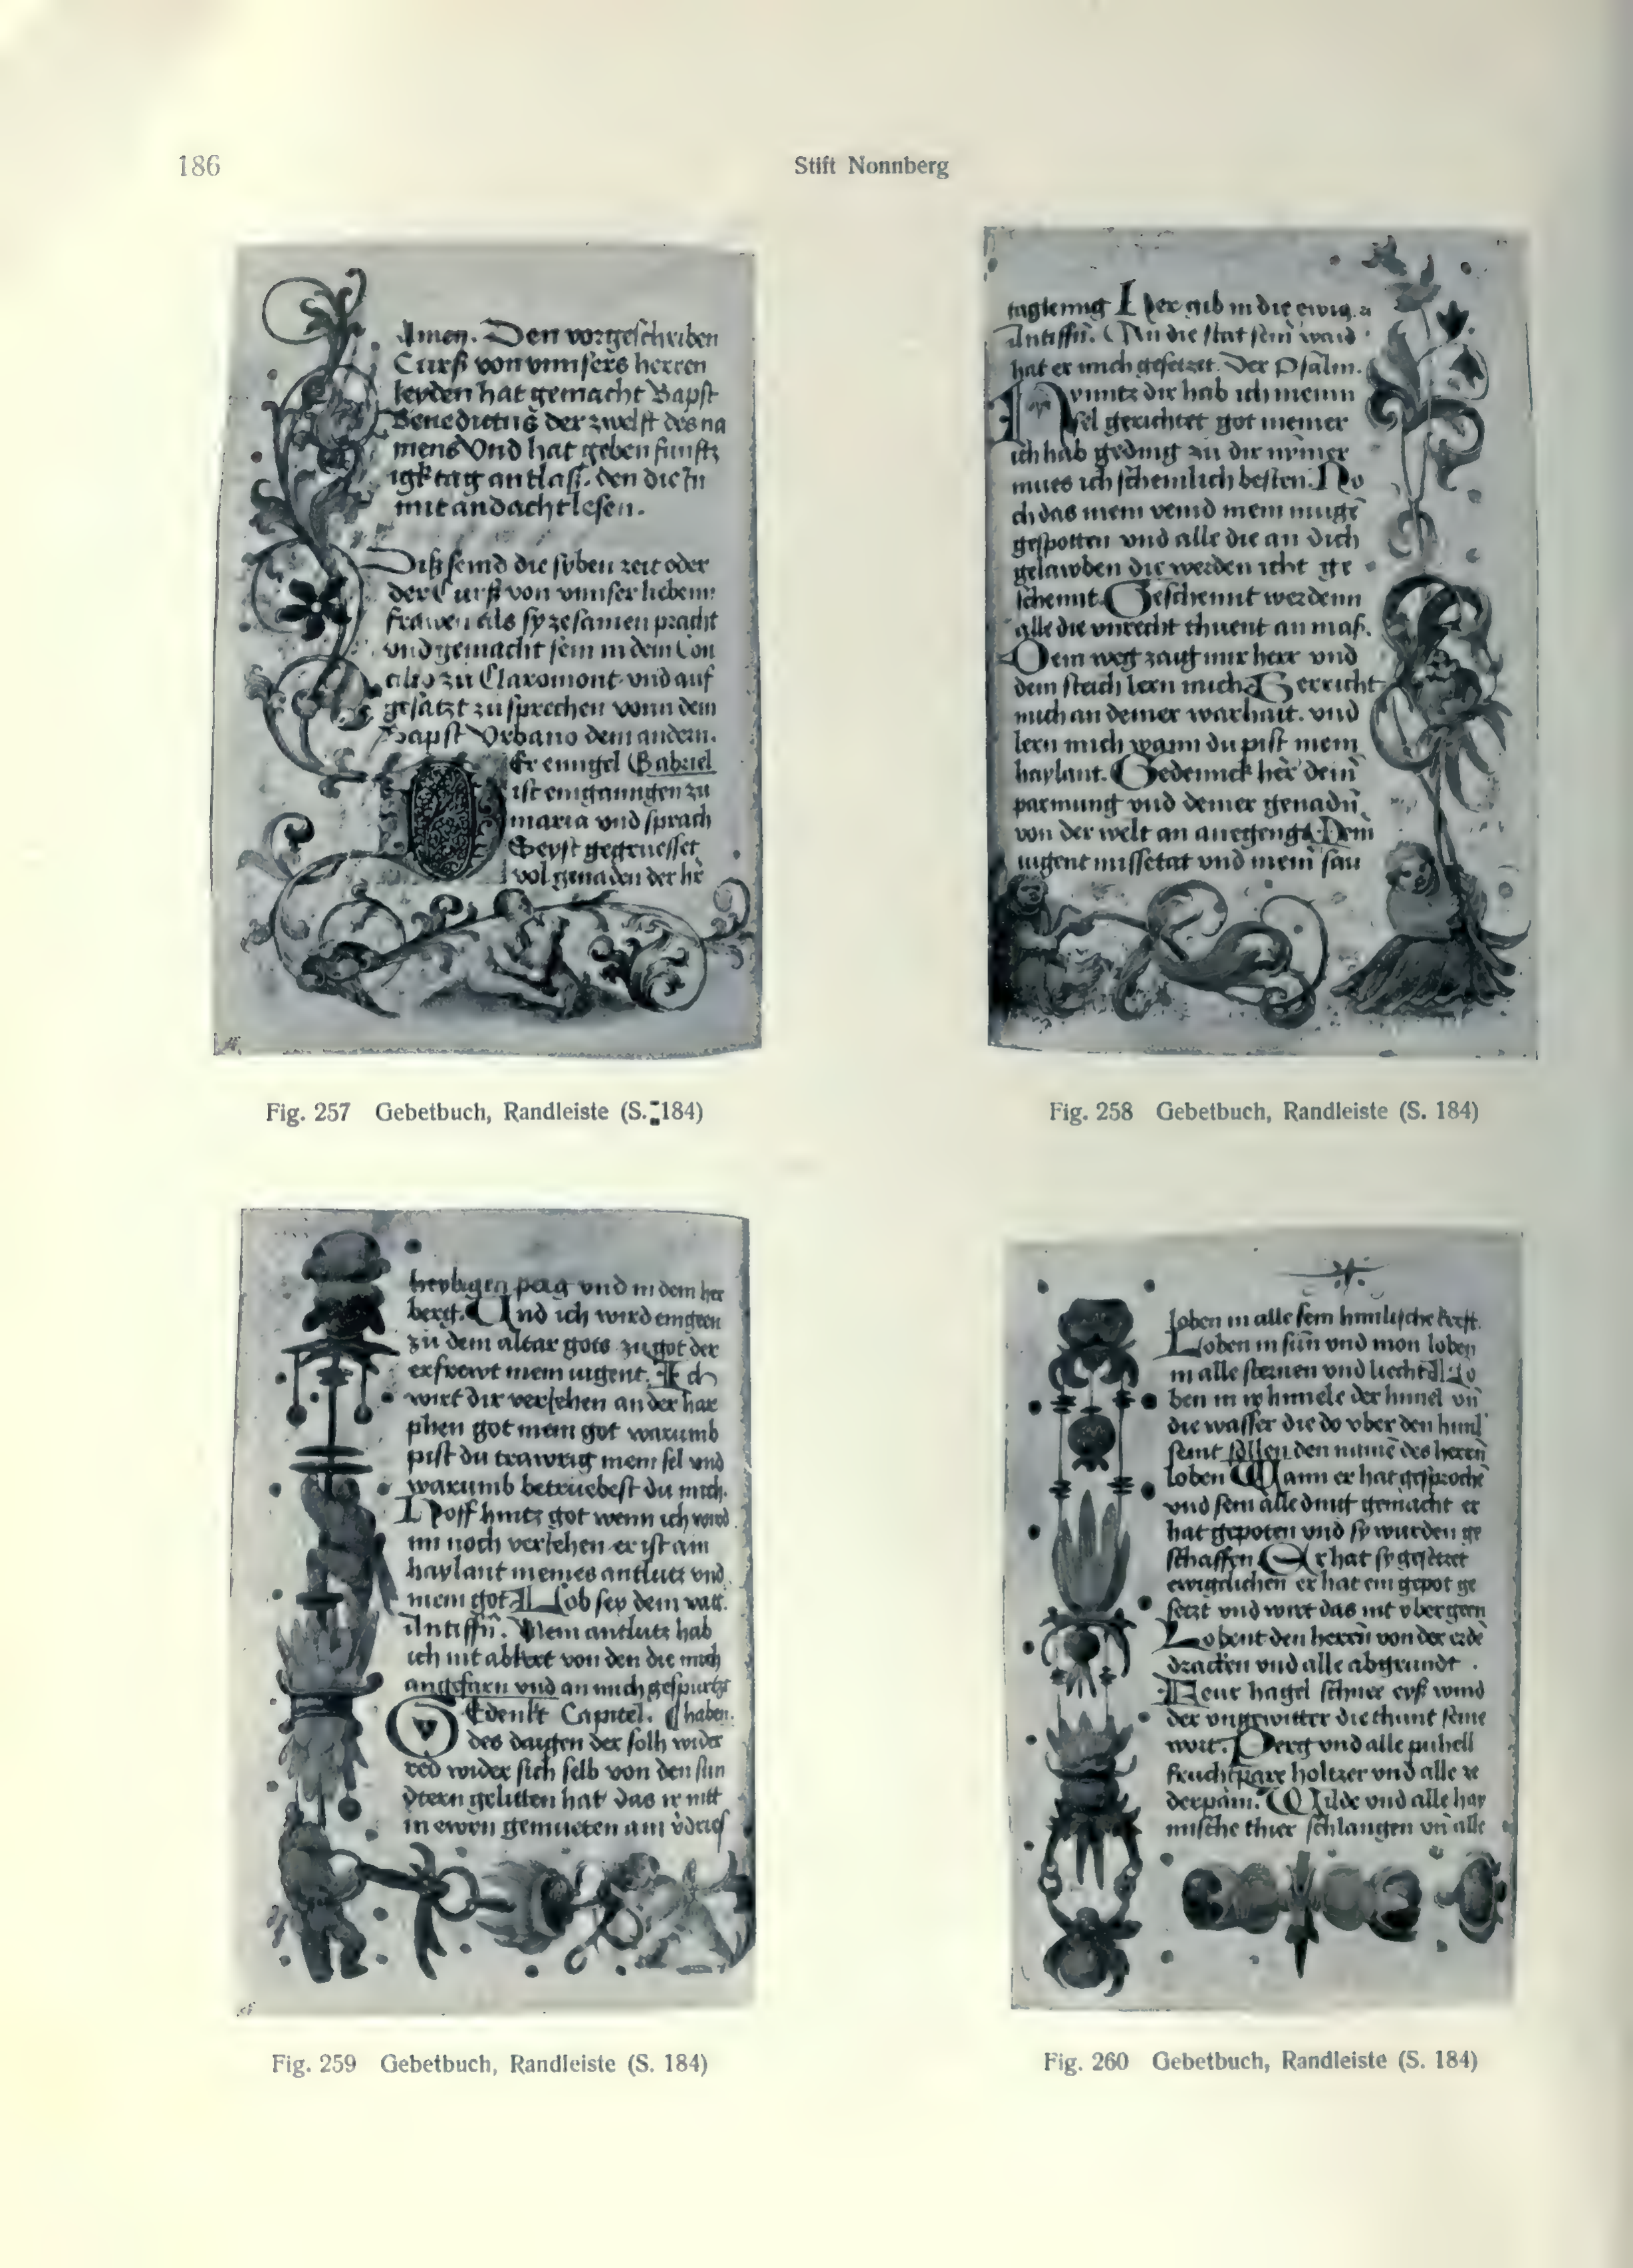 186
Stift Nonnberg
Amen. Den vorgeschriben
Curß von vnnsers herren
leyden hat gemacht Bapst
Benedictus der zwelft des na
mens Vnd hat geben funftz
igk tag antlaß. den die In
mit andacht lesen.
Diß seind die syben zeit oder
der Curß von vnnser liebenn
frawen als sy zesamen pracht
vnd gemacht sein in dem Con
cilio zu Claromont vnd auf
gesatzt zu sprechen vonn dem
Papst Vrbano dem andern.
Er enngel Gabriel
ist eingaungen zu
maria vnd sprach
Seyst gegruesset
vol genaden der hr
Fig. 257 Gebetbuch, Randleiste (S. 184)
gib in die ewig
Antiffn. An die stat sein waid
hat er mich gesetzet. Der Psalm.
hynntz dir hab ich meinn
sel gerichtet got meiner
ich hab geding zu dir nymer
mues ich schemlich besten. No
ch das mein veind mein muge
gespotten vnd alle die an dich
gelawben die werden icht ge
schennt. Geschennt werdenn
alle die vnrecht thuent an mas.
Dein weg zaig mir herr vnd
dein steich lern mich. Gerricht
mich an deiner warhait. vnd
lern mich wann du pist mein
haylant. Gedennck her dein
parmung vnd deiner genadn
von der welt an anegeng. Dem
iugent missetat vnd mein sau
Fig. 258 Gebetbuch, Randleiste (S. 184)
heyligen perg vnd in dem her
berg. Und ich wird eingeen
zu dem altar gots zu got der
erfrewt mein iugent. Ich
wirt dir veriehen an der har
phen got mein got warumb
pist du trawrig mein sel vnd
warumb betruebest du mich.
Hoff hintz got wenn ich wird
im noch veriehen er ist ain
haylant meines antlutz vnd
mein got. Lob sey dem vatt.
Antiffn. Mein antlutz hab
ich nit abkert von den die mich
angefarn vnd an mich gespurtzt
Gedenkt Capitel. haben.
des daigen der solh wider
red wider sich selb von den sun
dtern gelitten hat das ir nitt
in ewrn gemueten
Fig. 259 Gebetbuch, Randleiste (S. 184)
loben in alle sein himlische kreft.
Loben in sun vnd mon loben
in alle sternen vnd liecht. Lo
ben in ir himele der himel vn
die wasser die do vber den himl
seint sollen den name des herrn
loben Wann er hat gesproche
vnd sein alle dingt gemacht er
hat gepoten vnd sy wurden ge
schaffen Er hat sy gesetzet
ewigclichen er hat ein gepot ge
setzt vnd wirt das nit vbergeen
Lobent den herrn von der erde
dracken vnd alle abgrundt.
Feur hagel schnee eyß wind
der vngewitter die thunt seine
wort. Perg vnd alle puhell
fruchtpare holtzer vnd alle ze
derpam. Wilde vnd alle hay
mische thier schlangen vn alle
Fig. 260 Gebetbuch, Randleiste (S. 184)